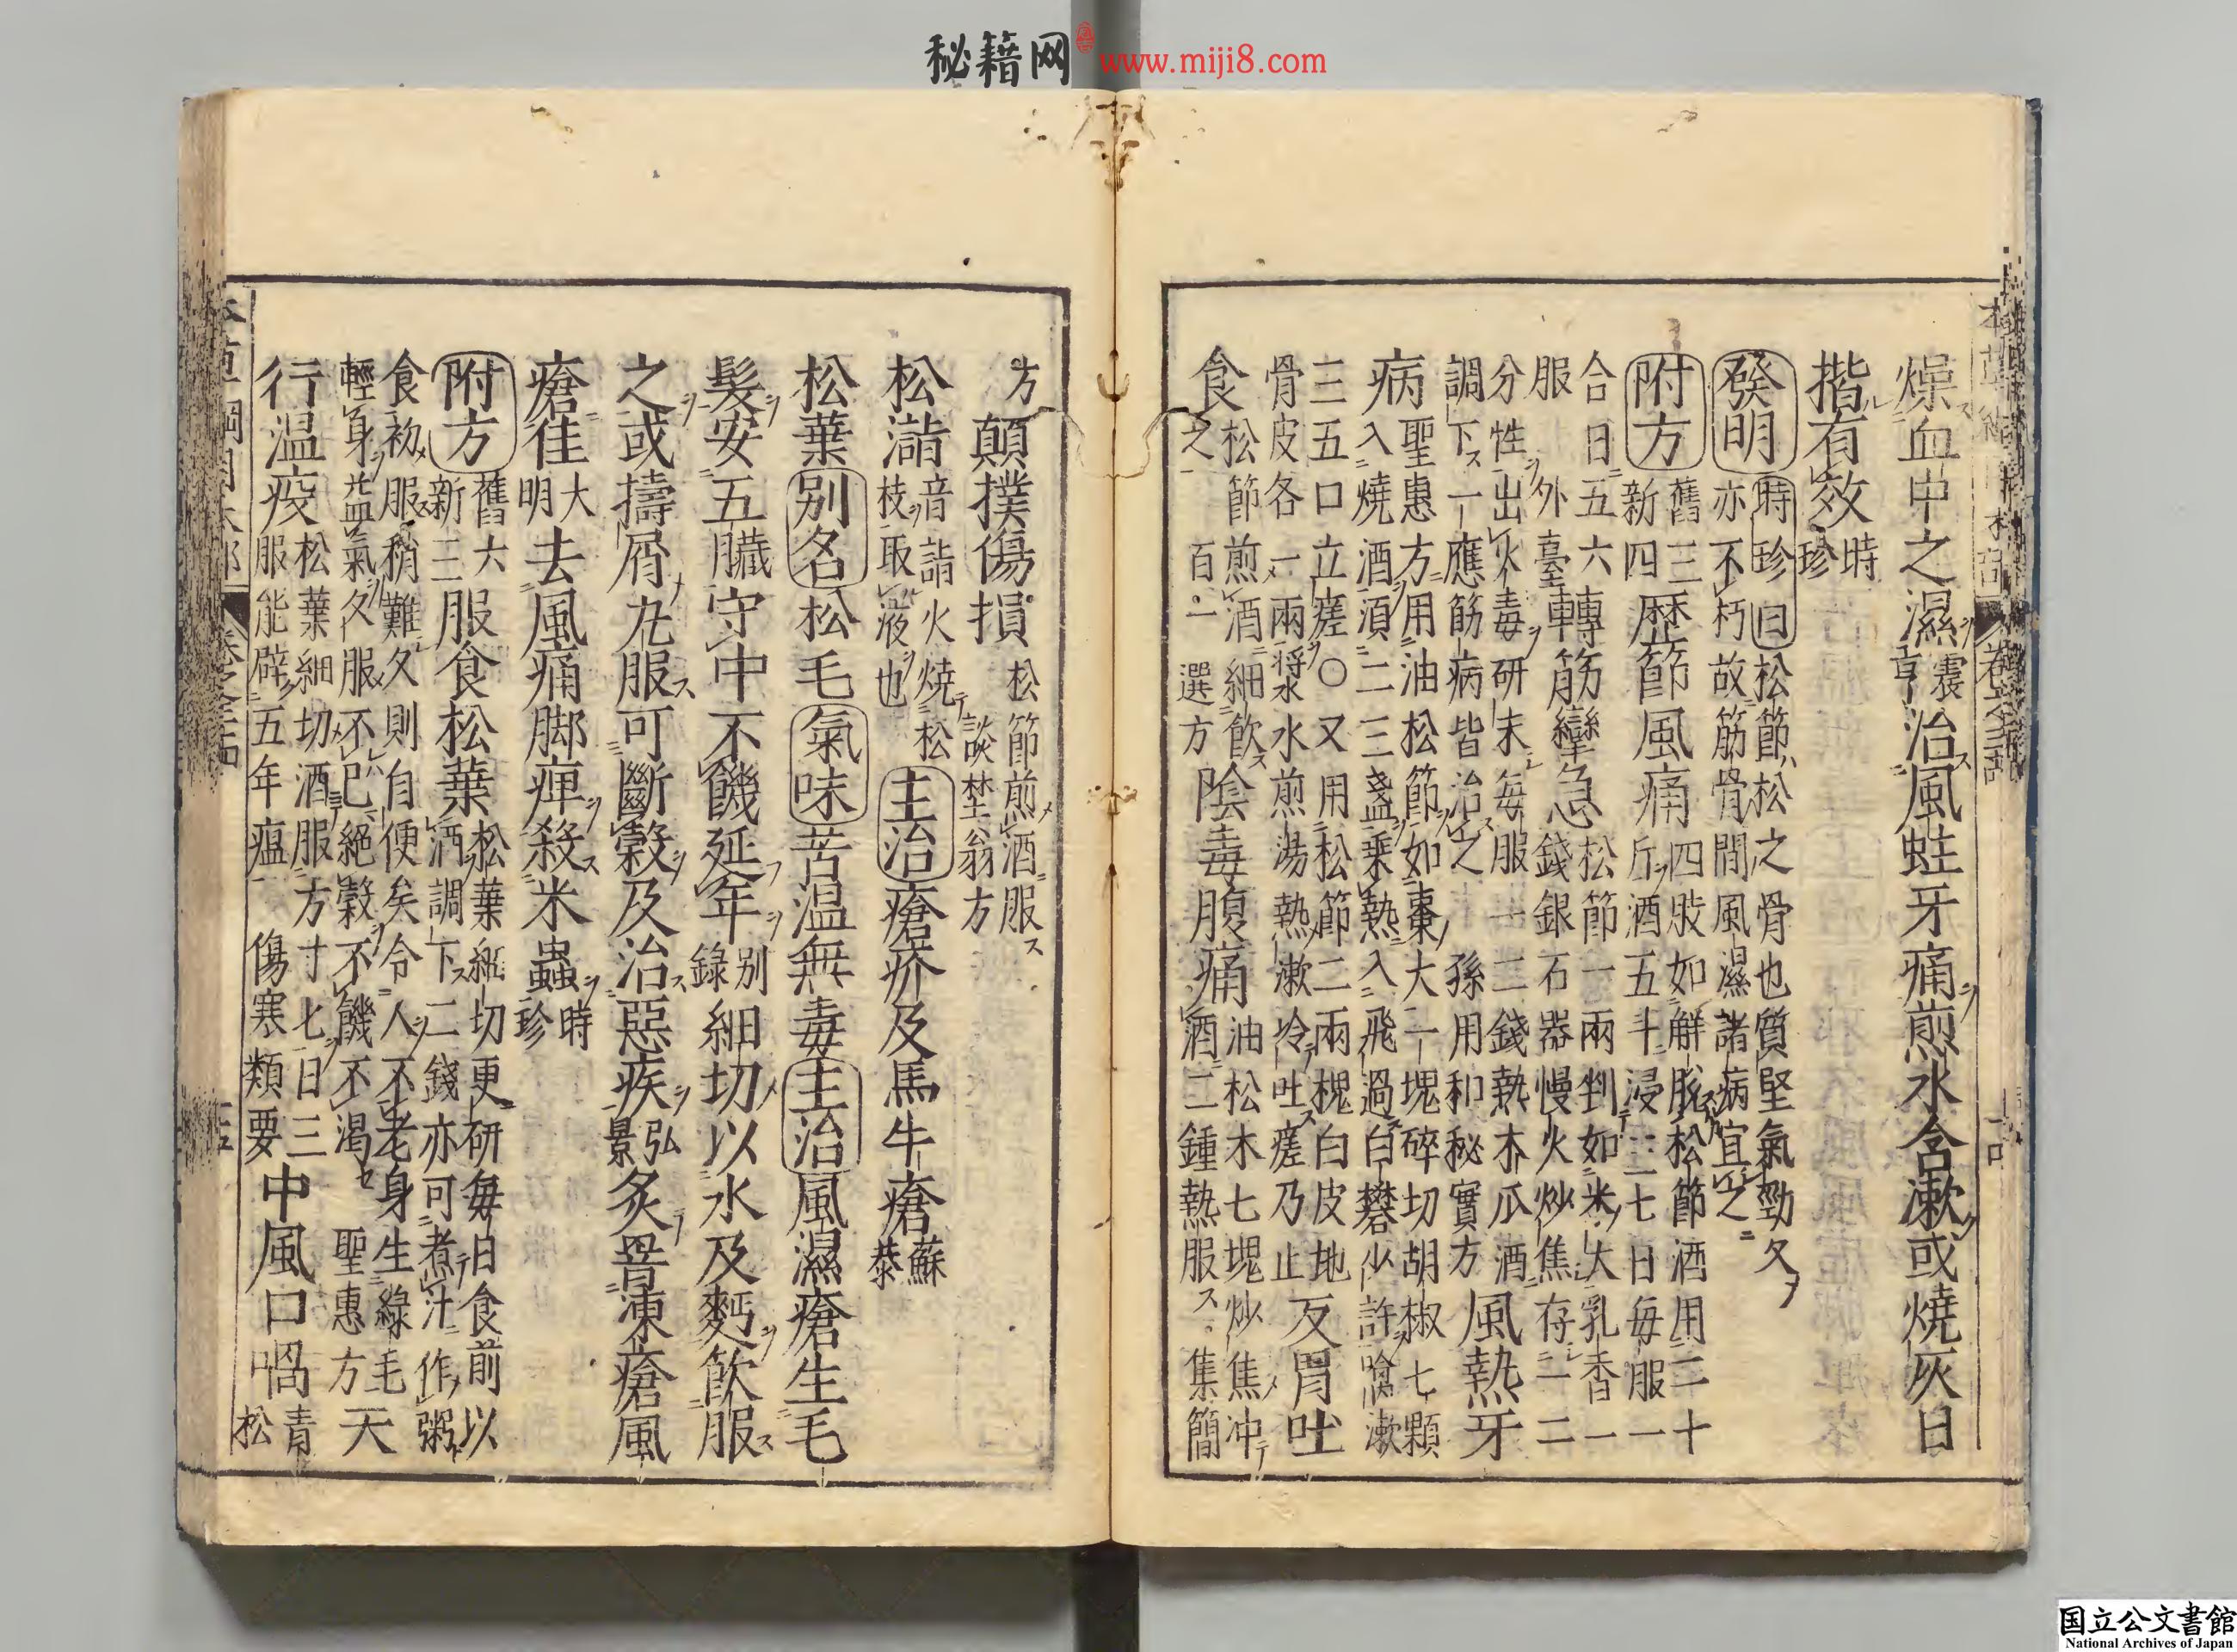 秘籍网 www.miji8.com
燥血中之濕震亨治風蛀牙痛煎水含漱或燒灰日
揩有效時珍
發明時珍曰松節松之骨也質堅氣勁久
亦不朽故筋骨間風濕諸病宜之
附方舊三新四歷節風痛四肢如解脫松節酒用二十
斤酒五斗浸三七日每服一
合日五六轉筋攣急松節一兩剉如米大乳香一
服外臺錢銀石器慢火炒焦存一二
分性出火毒研末每服一二錢熱木瓜酒
調下一應筋病皆治之孫用和秘寶方風熱牙
病聖惠方用油松節如棗大一塊碎切胡椒七顆
入燒酒須二三盞乘熱入飛過白礬少許噙漱
三五口立瘥○又用松節二兩槐白皮地
骨皮各一兩將水煎湯熱漱冷吐瘥乃止反胃吐
食松節煎酒細飲之百一選方陰毒腹痛油松木七塊炒焦冲
酒二鍾熱服集簡
方顛撲傷損松節煎酒服
談埜翁方
松㵛音詣火燒松枝取液也主治瘡疥及馬牛瘡蘇恭
松葉別名松毛氣味苦温無毒主治風濕瘡生毛
髮安五臟守中不饑延年別錄細切以水及麪飲服
之或擣屑丸服可斷穀及治惡疾弘景炙罯凍瘡風
瘡佳大明去風痛脚痺殺米蟲時珍
附方舊六新三服食松葉松葉細切更研每日食前以
酒調下二錢亦可煮汁作粥
食初服稍難久則自便矣令人不老身生綠毛
輕身益氣久服不已絕穀不饑不渴聖惠方天
行温疫松葉細切酒服方寸匕日三
服能辟五年瘟傷寒類要中風口喎青
松
国立公文書館
National Archives of Japan